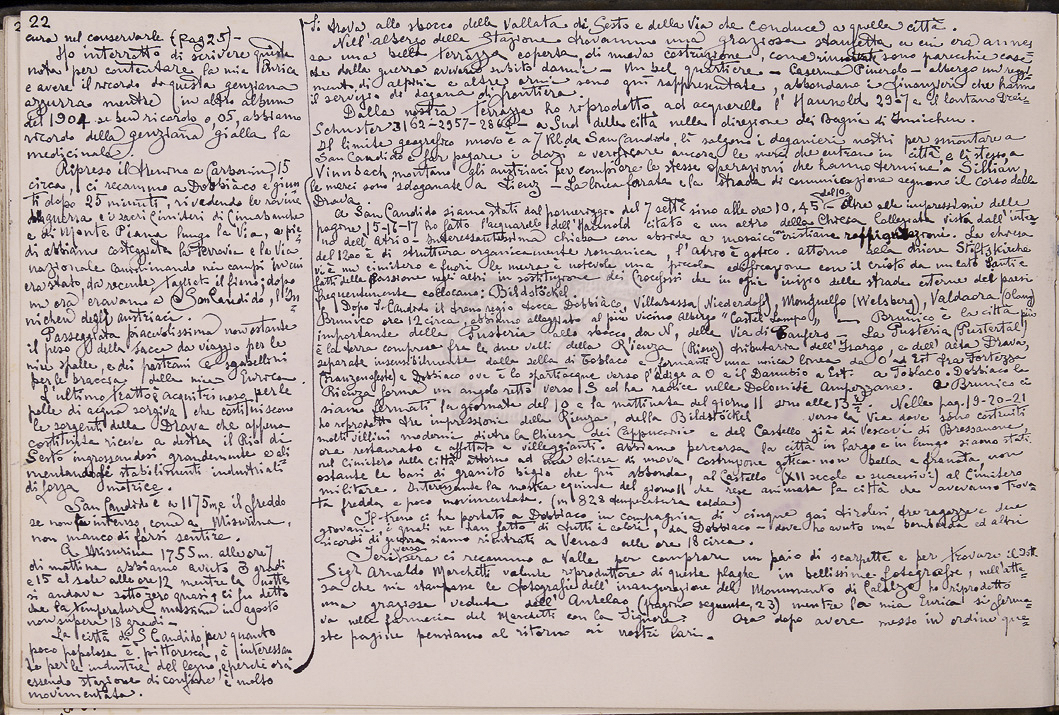 22
cura nel conservarle (pag 25) -
Ho interrotto di scrivere queste
note per contentare la mia Enrica
e avere il ricordo di questa genziana
azzurra mentre (in altro album
del 1904 se ben ricordo 0,05, abbiamo
ricordo della genziana gialla la
medicinale)
Ripreso il trenino a Carbonin, 15
circa, ci recammo a Dobbiaco e giun
ti dopo 25 minuti, rivedendo le rovine
della guerra e i sacri Cimiteri di Cimabanche
e di Monte Piana lungo la Via, a pie
di abbiamo costeggiata la ferrovia e la Via
nazionale camminando nei campi in cui
era stato, da recente, tagliato il fieno; dopo
un'ora eravamo a S. Candido, l'In
nichen degli austriaci.
Passeggiata piacevolissima nonostante
il peso della sacca da viaggio per le
mie spalle, e dei pastrani e sgabellini
per le braccia della mia Enrica.
L'ultimo tratto è acquitrinoso per le
polle di acqua sorgiva che costituiscono
le sorgenti della Drava che appena
costituita riceve a destra il Rio di
Sesto ingrossandosi grandemente e ali
mentando stabilimenti industriali
di forza motrice.
San Candido è a 1175 m e il freddo
se non intenso, come a Misurina,
non mancò di farsi sentire.
A Misurina 1755 m. alle ore 7
di mattina abbiamo avuto 3 gradi
e 15 al sole alle ore 12 mentre la notte
si andava sotto zero gradi e ci fu detto
che la temperatura massima in agosto
non supera 18 gradi -
La città di S. Candido, per quanto
poco popolosa è pittoresca, è interessan
te per le industrie del legno, e perchè ora
essendo stazione di confine, è molto
movimentata.
Si trova allo sbocco della Vallata di Sesto e della Via che conduce a quella città.
Nell'albergo della Stazione trovammo una graziosa stanzetta a cui era annes
sa una bella terrazza coperta, di nuova costruzione, come sono parecchie case
che dalla guerra avevano subito danni - Un bel quartiere - Caserma Pinerolo - albergo un reggi
mento di alpini e altre armi sono qui rappresentate, abbondano i finanzieri che hanno
il servizio di dogana di frontiera.
Dalla nostra terrazza ho riprodotto ad acquerello l'Haunold 2957 e il lontano Drei
Schuster 3162 - 2957 - - a Sud della città nella direzione dei Bagni di Innichen.
Il limite geografico nuovo è a 7 Kl. da San Candido, lì salgono i doganieri nostri per smontare a
San Candido a far pagare i dazi e verificare ancora le merci che entrano in città, e lì stesso a
Vinnbach montano gli austriaci per compiere le stesse operazioni che hanno termine a Sillian,
le merci sono sdoganate a Lienz - La linea ferrata e la strada di comunicazione seguono il corso della
Drava.
A San Candido siamo stati dal pomeriggio del 7 sett. sino alle ore 10,45 del 10 - Oltre alle impressioni delle
pagine 15-16-17 ho fatto l'acquarello dell'Haunold citato e un altro della Chiesa Collegiata vista dall'inter
no dell'Atrio - Interessantissima chiesa con abside a mosaico con cristiane raffigurazioni. La chiesa
del 1200 è di struttura organicamente romanica, l'atrio è gotico. Attorno alla chiesa Stiftskirche
vi è un cimitero e fuori le mura è notevole una piccola edificazione con il Cristo da un lato Santi e
fatti della Passione negli altri in sostituzione dei Crocifissi che in ogni inizio delle strade esterne dei paesi
frequentemente collocano: Bildstöckel
Dopo S. Candido il treno regio tocca Dobbiaco, Villabassa (Niederdorf), Monguelfo (Welsberg), Valdaora (Olang)
Brunico ore 12 circa. Abbiamo alloggiato al più vicino albergo "Castel Lampo", - Brunico è la città più
importante della Pusteria allo sbocco, da N, della Via di Taufers. - La Pusteria (Pustertal)
è la terra compresa fra le due valli della Rienza (Rienz) tributaria dell'Isarco, e dell'alta Drava,
separate insensibilmente dalla sella di Toblaco formanti una unica linea da O ad Est fra Fortezza
(Franzensfeste) e Dobbiaco ove è lo spartiacque verso l'Adige a O e il Danubio a Est. A Toblaco - Dobbiaco la
Rienza forma un angolo retto verso S ed ha radice nelle Dolomiti Ampezzane. A Brunico ci
siamo fermati la giornata del 10 e la mattinata del giorno 11 sino alle 13. Nelle pag. 19-20-21
ho riprodotto tre impressioni della Rienza, della Bildstöckel verso la Via dove sono costruiti
molti villini moderni, dietro la Chiesa dei Cappuccini e del Castello già di Vescovi di Bressanone,
ora restaurato e affittato a villeggianti. Abbiamo percorsa la città in largo e in lungo siamo stati
nel Cimitero della città attorno ad una chiesa di nuova costruzione gotica non bella e sfrenata non
ostante le basi di granito bigio che qui abbonda, al Castello (XII secolo e successivi) al Cimitero
militare. Interessante la mostra equina del giorno 11 che rese animata la città che avevamo trova
ta fredda e poco movimentata. (m 828 temperatura calda)
Il treno ci ha portato a Dobbiaco in compagnia di cinque gai tirolesi tre ragazze e due
giovanotti i quali ne han fatto di tutti i colori, da Dobbiaco - dove ho avuto una bomba ed altri
ricordi di guerra siamo rientrati a Venas alle ore 18 circa.
Ieri sera ci recammo verso a Valle per comprare un paio di scarpette e per trovare il
Sigr. Arnaldo Marchetti valente riproduttore di queste plaghe in bellissime fotografie, nell'atte
sa che mi stampasse le fotografie dell'inaugurazione del Monumento di Calalzo ho riprodotto
una graziosa veduta dell'Antelao (pagina seguente, 23) mentre la mia Enrica si ferma
va nella farmacia del Marchetti con la Signora. Ora dopo avere messo in ordine que
ste pagine pensiamo al ritorno ai nostri lari.